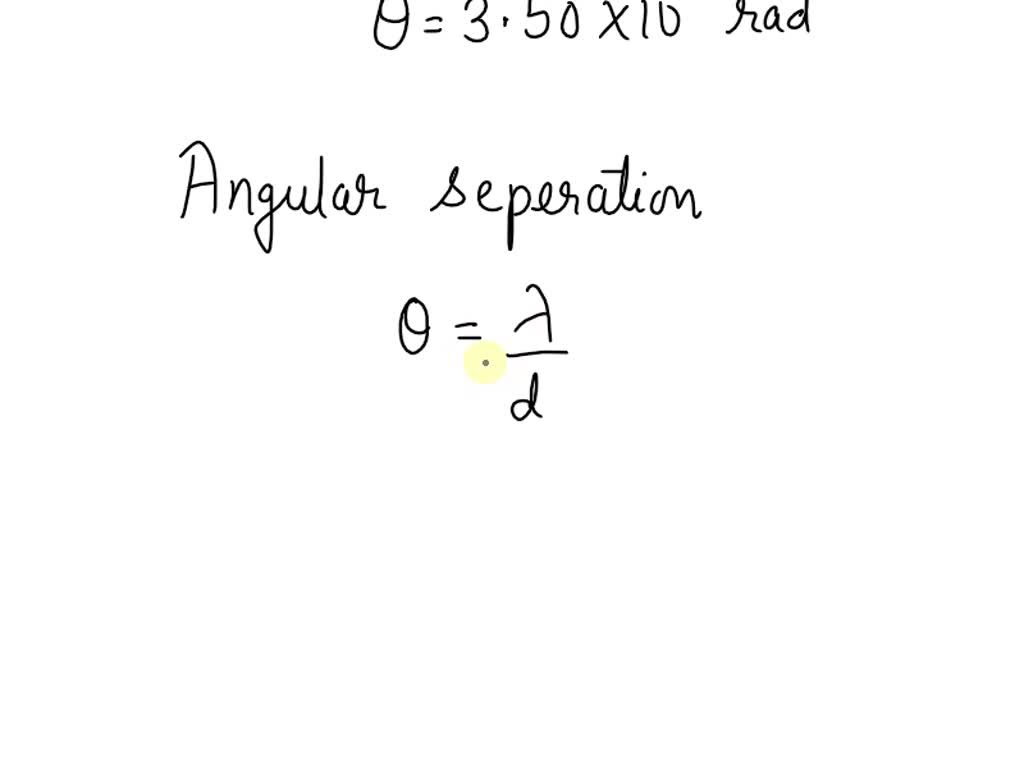 θ = 3.50 × 10 rad
Angular seperation
θ = λ
d